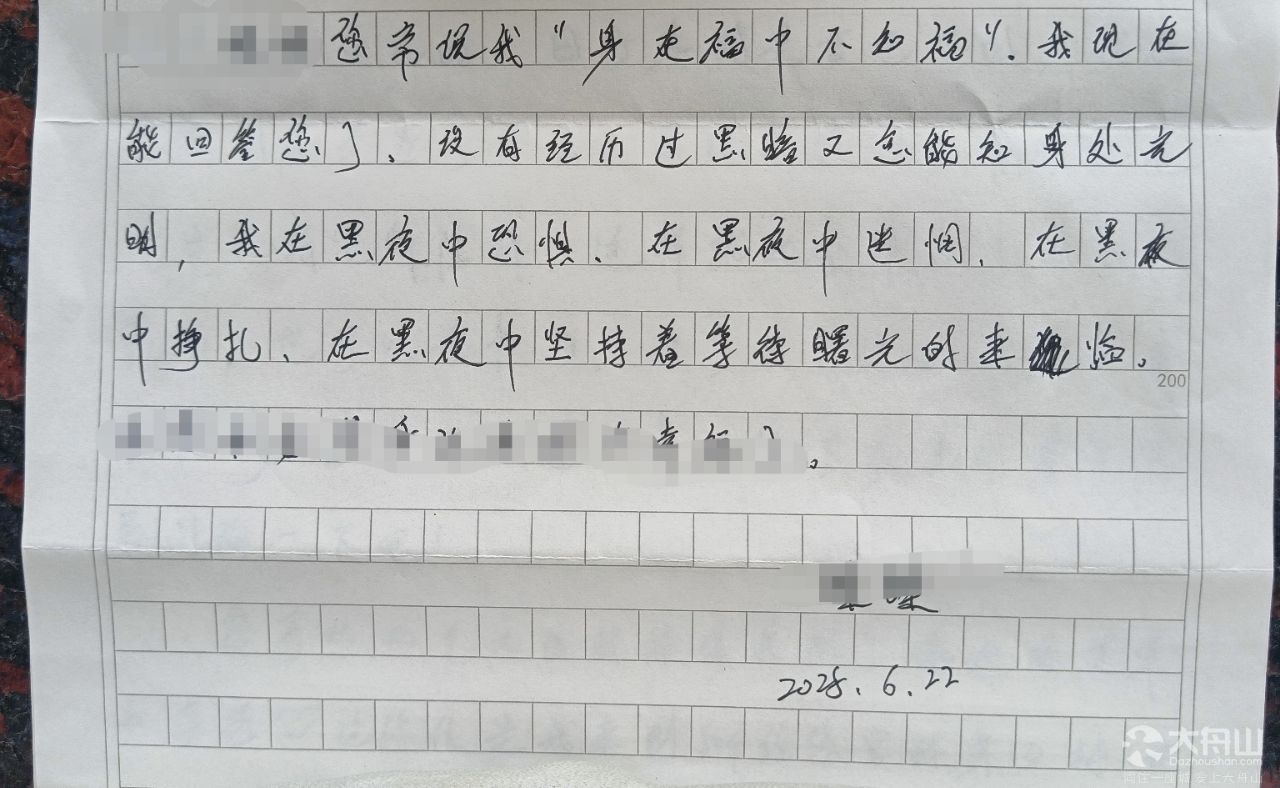 您常说我“身在福中不知福”。我现在
能回答您了、没有经历过黑暗又怎能知身处光
明，我在黑夜中恐惧、在黑夜中迷惘、在黑夜
中挣扎、在黑夜中坚持着等待曙光的来临。
200
2025.6.22
大舟山
Dazhoushan.com